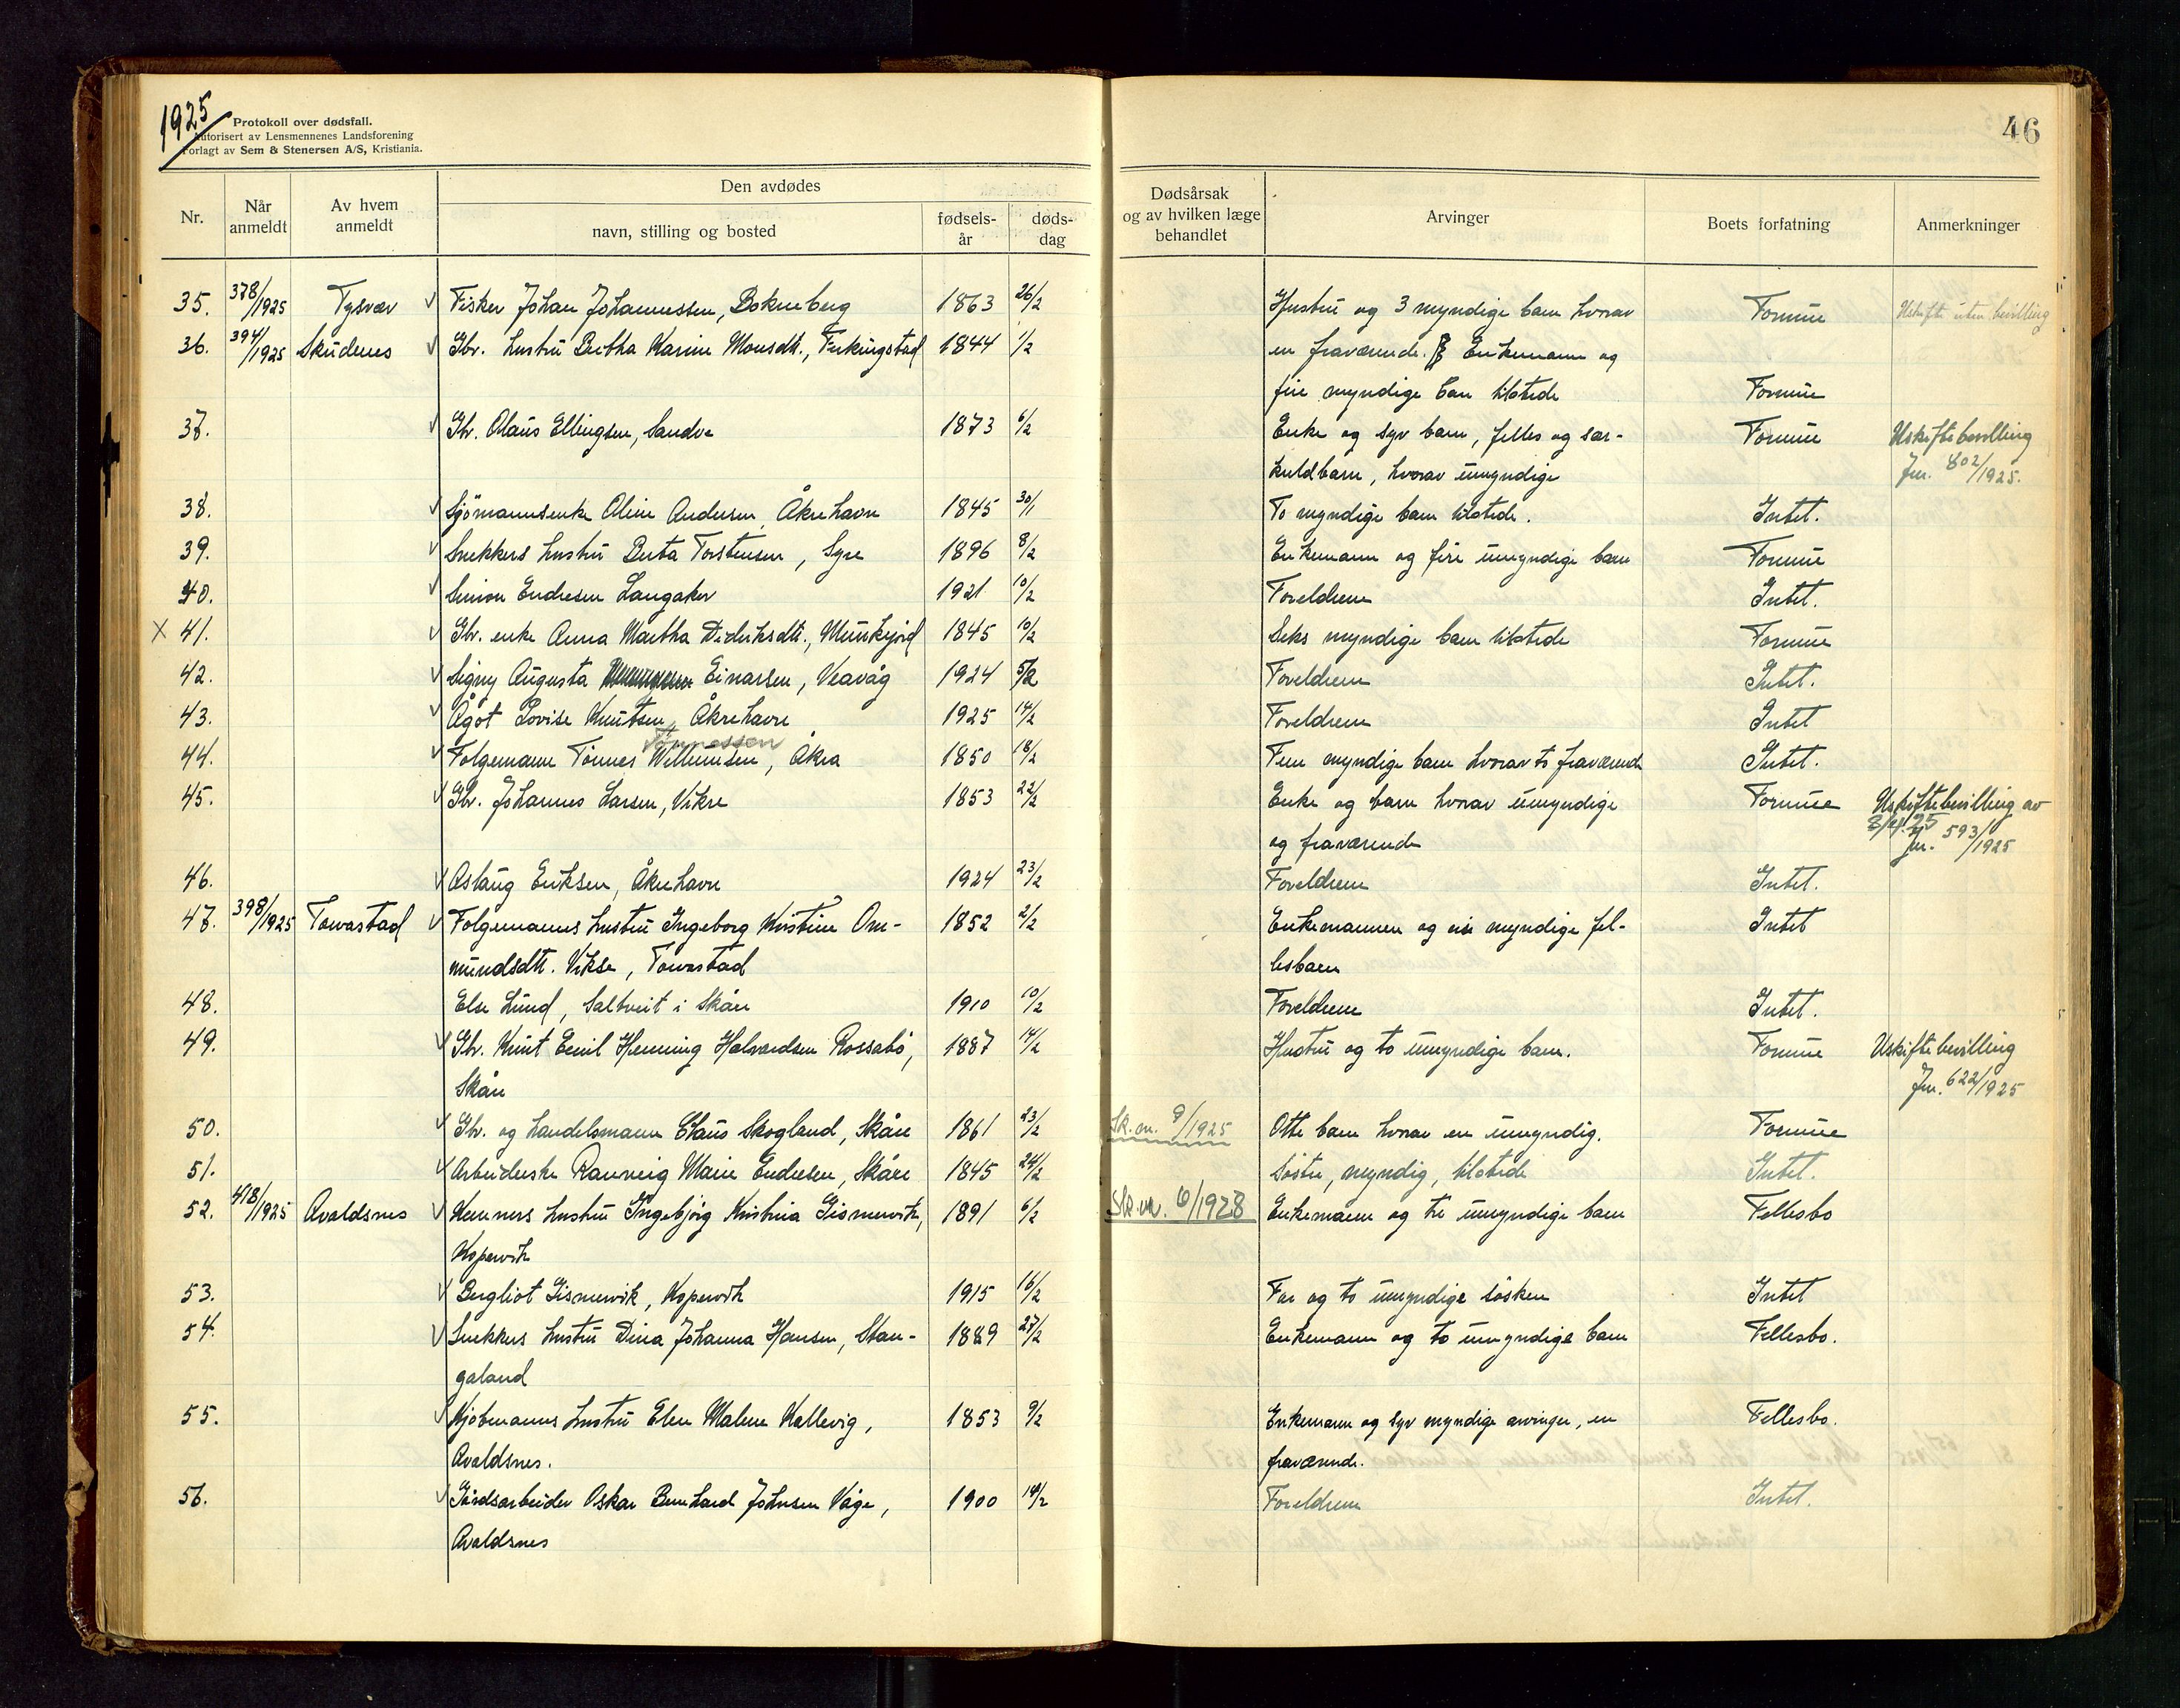 1925
Protokoll over dødsfall.
Autorisert av Lensmennenes Landsforening
Forlagt av Sem & Stenersen A/S, Kristiania.
46
Nr. Når anmeldt Av hvem anmeldt Den avdødes navn, stilling og bosted fødsels-år døds-dag Dødsårsak og av hvilken læge behandlet Arvinger Boets forfatning Anmerkninger
35. 378/1925 Tysvær Fisker Johan Johannessen, Bokneberg 1863 26/2 Hustru og 3 myndige barn hvorav Formue Uskifte uten bevilling
36. 394/1925 Skudenes Gbr. hustru Bertha Karine Monsdt., Ferkingstad 1844 1/2 en fraværende. Enkemann og
fire myndige barn tilstede Formue
37. Gbr. Olaus Ellingsen, Sandve 1873 6/2 Enke og syv barn, felles og sær- Formue Uskiftebevilling
kuldbarn, hvorav umyndige Jnr. 802/1925.
38. Sjömannsenke Oline Andersen, Åkrehavn 1845 30/1 To myndige barn tilstede. Intet.
39. Snekkers hustru Berta Torstensen, Syre 1896 8/2 Enkemann og fire umyndige barn Formue
40. Simon Endresen Langaker 1921 10/2 Foreldrene Intet.
X 41. Gbr. enke Anna Martha Didriksdt., Munkejord 1845 10/2 Seks myndige barn tilstede Formue
42. Signy Augusta Einarsen, Veavåg 1924 5/2 Foreldrene Intet.
43. Ågot Lovise Knutsen, Åkrehavn 1925 14/2 Foreldrene Intet
Tønnessen
44. Folgemann Tönnes Willumsen, Åkra 1850 18/2 Fem myndige barn hvorav to fraværende Intet.
45. Gbr. Johannes Larsen, Vikre 1853 22/2 Enke og barn hvorav umyndige Formue Uskiftebevilling av
og fraværende 3/4. 25 Jnr. 593/1925
46. Aslaug Eriksen, Åkrehavn 1924 23/2 Foreldrene Intet.
47. 398/1925 Torvastad Folgemanns hustru Ingeborg Kristine Om- 1852 2/2 Enkemannen og myndige fel- Intet
mundsdt. Vikse, Torvastad lesbarn
48. Else Lund, Saltveit i Skåre 1910 10/2 Foreldrene Intet.
49. Gbr. Knut Emil Henning Halvardsen Rossabö, 1887 14/2 Hustru og to umyndige barn. Formue Uskiftebevilling
Skåre Jnr. 622/1925
50. Gbr. og handelsmann Claus Skogland, Skåre 1861 23/2 Sk. nr. 9/1925 Otte barn hvorav en umyndig. Formue
51. Arbeiderske Ranveig Marie Endresen, Skåre 1845 24/2 Söster, myndig, tilstede Intet.
52. 418/1925 Avaldsnes Kemners hustru Ingebjörg Kristina Gismervik, 1891 6/2 Sk. nr. 6/1928 Enkemann og tre umyndige barn Fellesbo
Kopervik
53. Bergliot Gismervik, Kopervik 1915 16/2 Far og to umyndige sösken Intet
54. Snekkers hustru Dina Johanna Hansen, Stan- 1889 27/2 Enkemann og to umyndige barn Fellesbo.
galand
55. Kjöbmanns hustru Elen Malene Kallevig, 1853 9/2 Enkemann og syv myndige arvinger, en Fellesbo.
Avaldsnes. fraværende.
56. Gårdsarbeider Oskar Bernhard Johnsen Våge, 1900 14/2 Foreldrene Intet.
Avaldsnes